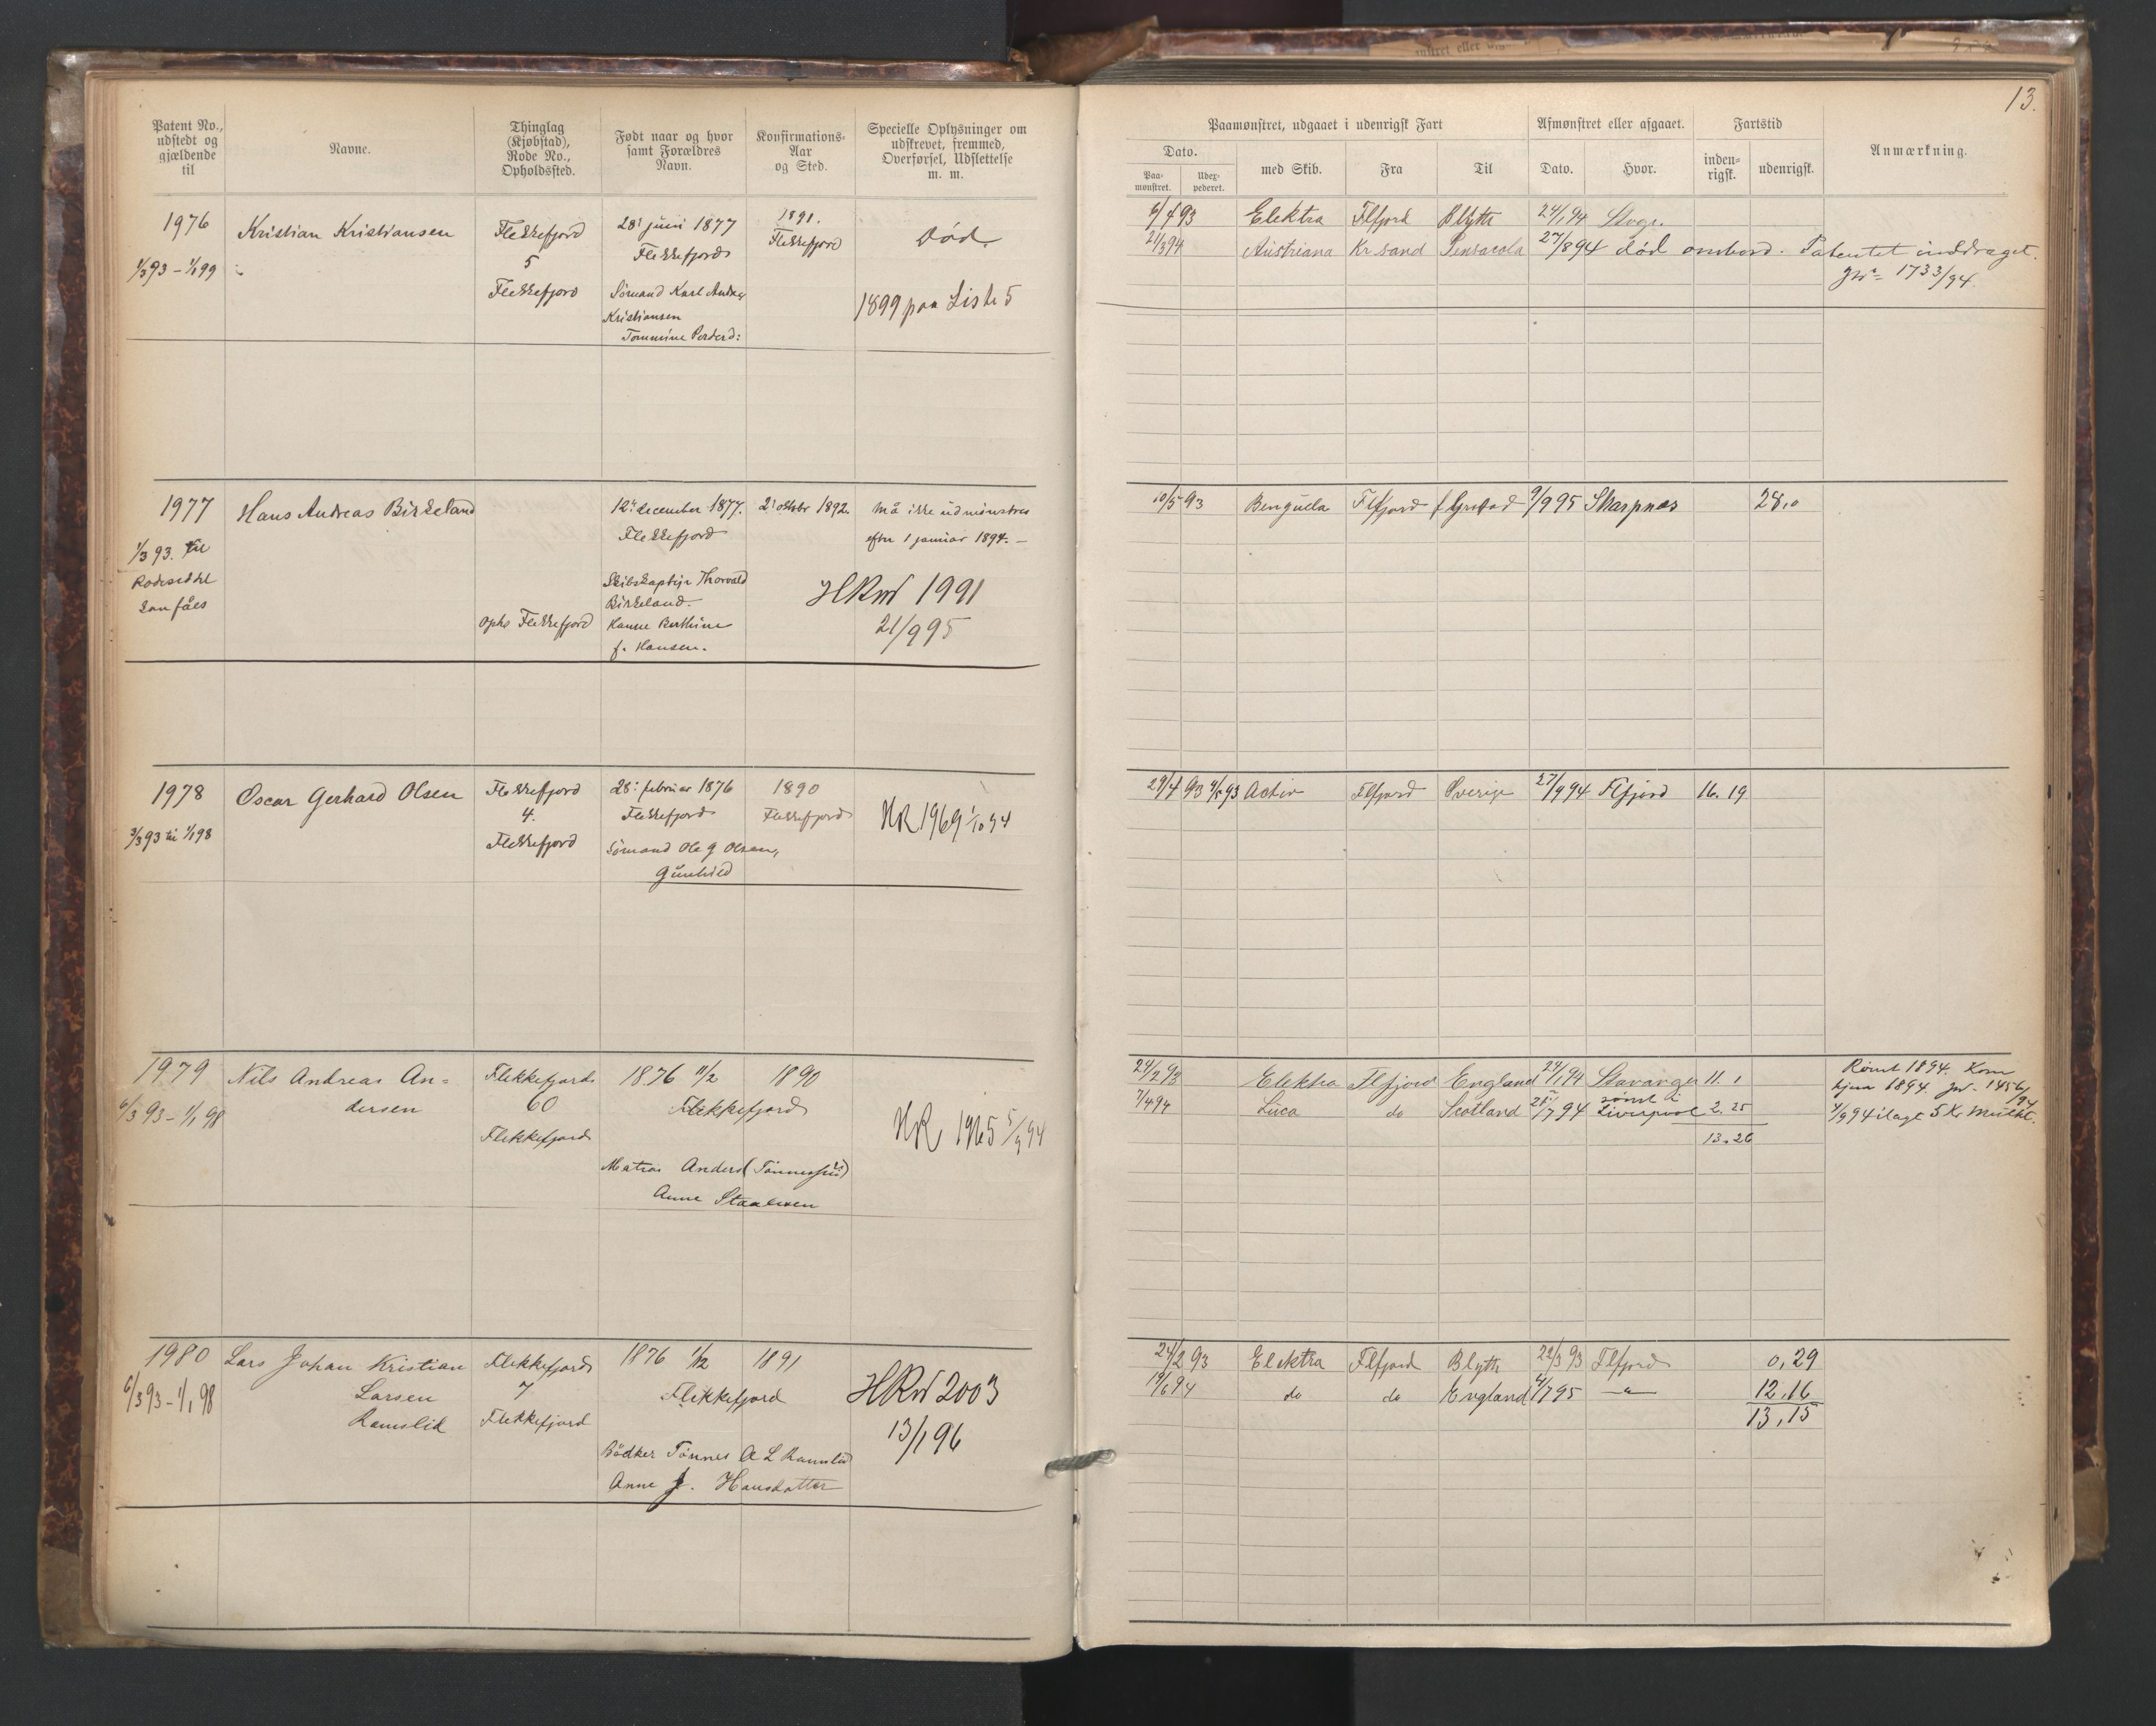 13.
Patent No., udstedt og gjældende til
Navne.
Thinglag (Kjøbstad), Rode No., Opholdssted.
Født naar og hvor samt Forældres Navn.
Konfirmations-Aar og Sted.
Specielle Oplysninger om udskrevet, fremmed, Overførsel, Udslettelse m. m.
Paamønstret, udgaaet i udenrigsk Fart
Afmønstret eller afgaaet.
Fartstid
Anmærkning.
Dato.
Paa-mønstret.
Udex-pederet.
med Skib.
Fra
Til
Dato.
Hvor.
inden-rigsk.
udenrigsk.
1976
1/3 93 - 1/1 99
Kristian Kristiansen
Flekkefjord
5
Flekkefjord
28' juni 1877
Flekkefjord
Sømand Karl Andreas
Kristiansen
Tommine Pedersd:
1891.
Flekkefjord
Død.
1899 paa Liste 5
6/4 93 Elektra Flfjord Blyth 24/1 94 Stvgr.
21/3 94 Austriana Kr.sand Pensacola 27/8 94 død ombord. Patentet inddraget.
Jnr 1733/94.
1977
1/3 93. til
Rodeseddel
kan fåes
Hans Andreas Birkeland
Opho Flekkefjord
12' december 1877.
Flekkefjord
Skibskaptejn Thorvald
Birkeland.
Hanne Berthine
f. Hansen.
2' oktobr 1892.
Må ikke udmønstres
efter 1 januar 1894. -
HRnd 1991
21/9 95
10/5 93 Benguela Flfjord 9/9 95 Skarpnes 28,0
1978
3/3 93 til 1/1 98
Oscar Gerhard Olsen
Flekkefjord
4.
Flekkefjord
28' februar 1876
Flekkefjord
Sømand Ole G Olsen,
Gunhild
1890
Flekkefjord
NR 1969 1/10 94
29/4 93 4/5 93 Activ Flfjord Sverige 27/9 94 Flfjord 16. 19
1979
6/3 93 - 1/1 98
Nils Andreas An=
dersen
Flekkefjord
60
Flekkefjord
1876 11/2
1890
Flekkefjord
Matros Anders (Tønnessen)
Anne Staalesen
NR 1965 5/9 94
24/2 93 Elektra Flfjord England 24/1 94 Stavanger 11. 1
7/4 94 Luca do Scotland 28/7 94 rømt i Liverpool 2. 25
13.26
Rømt 1894. Kom
hjem 1894. Jnr. 1456/94
4/9 94 ilagt 5 Kr Mulkt.
1980
6/3 93 - 1/1 98
Lars Johan Kristian
Larsen
Ramslid
Flekkefjord
7
Flekkefjord
1876 1/12
1891
Flekkefjord
Bødker Tønnes A L Ramslid
Anne J. Hansdatter
HRnd 2003
13/1 96
24/2 93 Elektra Flfjord Blyth 22/3 93 Flfjord 0,29
19/6 94 do do England 4/7 95 — " — 12,16
13,15